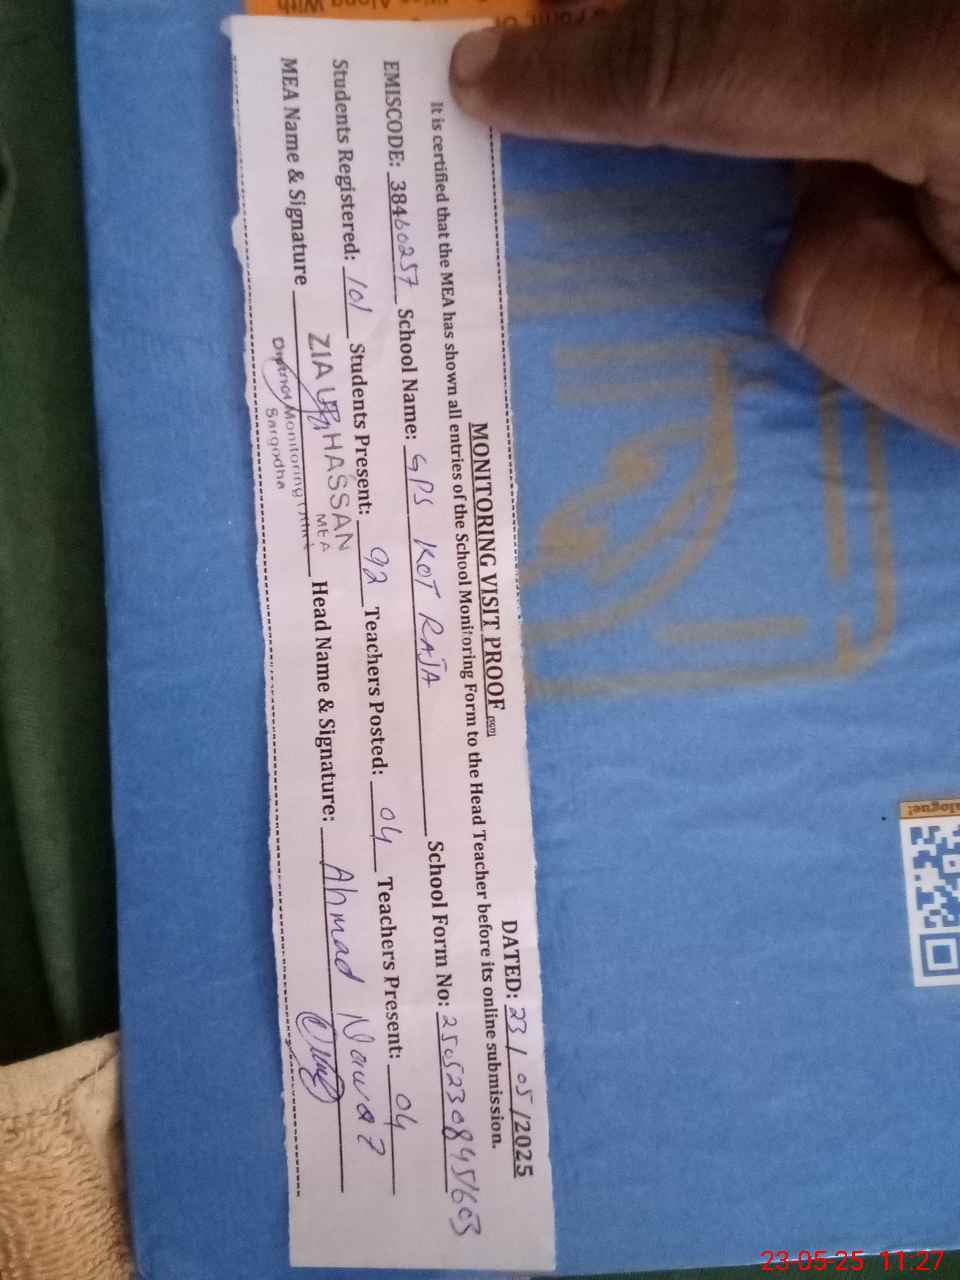 MONITORING VISIT PROOF
DATED: 23/05/2025
It is certified that the MEA has shown all entries of the School Monitoring Form to the Head Teacher before its online submission.
EMISCODE: 38460257 School Name: GPS KOT RAJA School Form No:
Students Registered: 101 Students Present: 92 Teachers Posted: 04 Teachers Present: 04
MEA Name & Signature ZIA UL HASSAN Head Name & Signature: Ahmad Nawaz
MEA
Monitoring
Sargodha
23-05-25 11:27